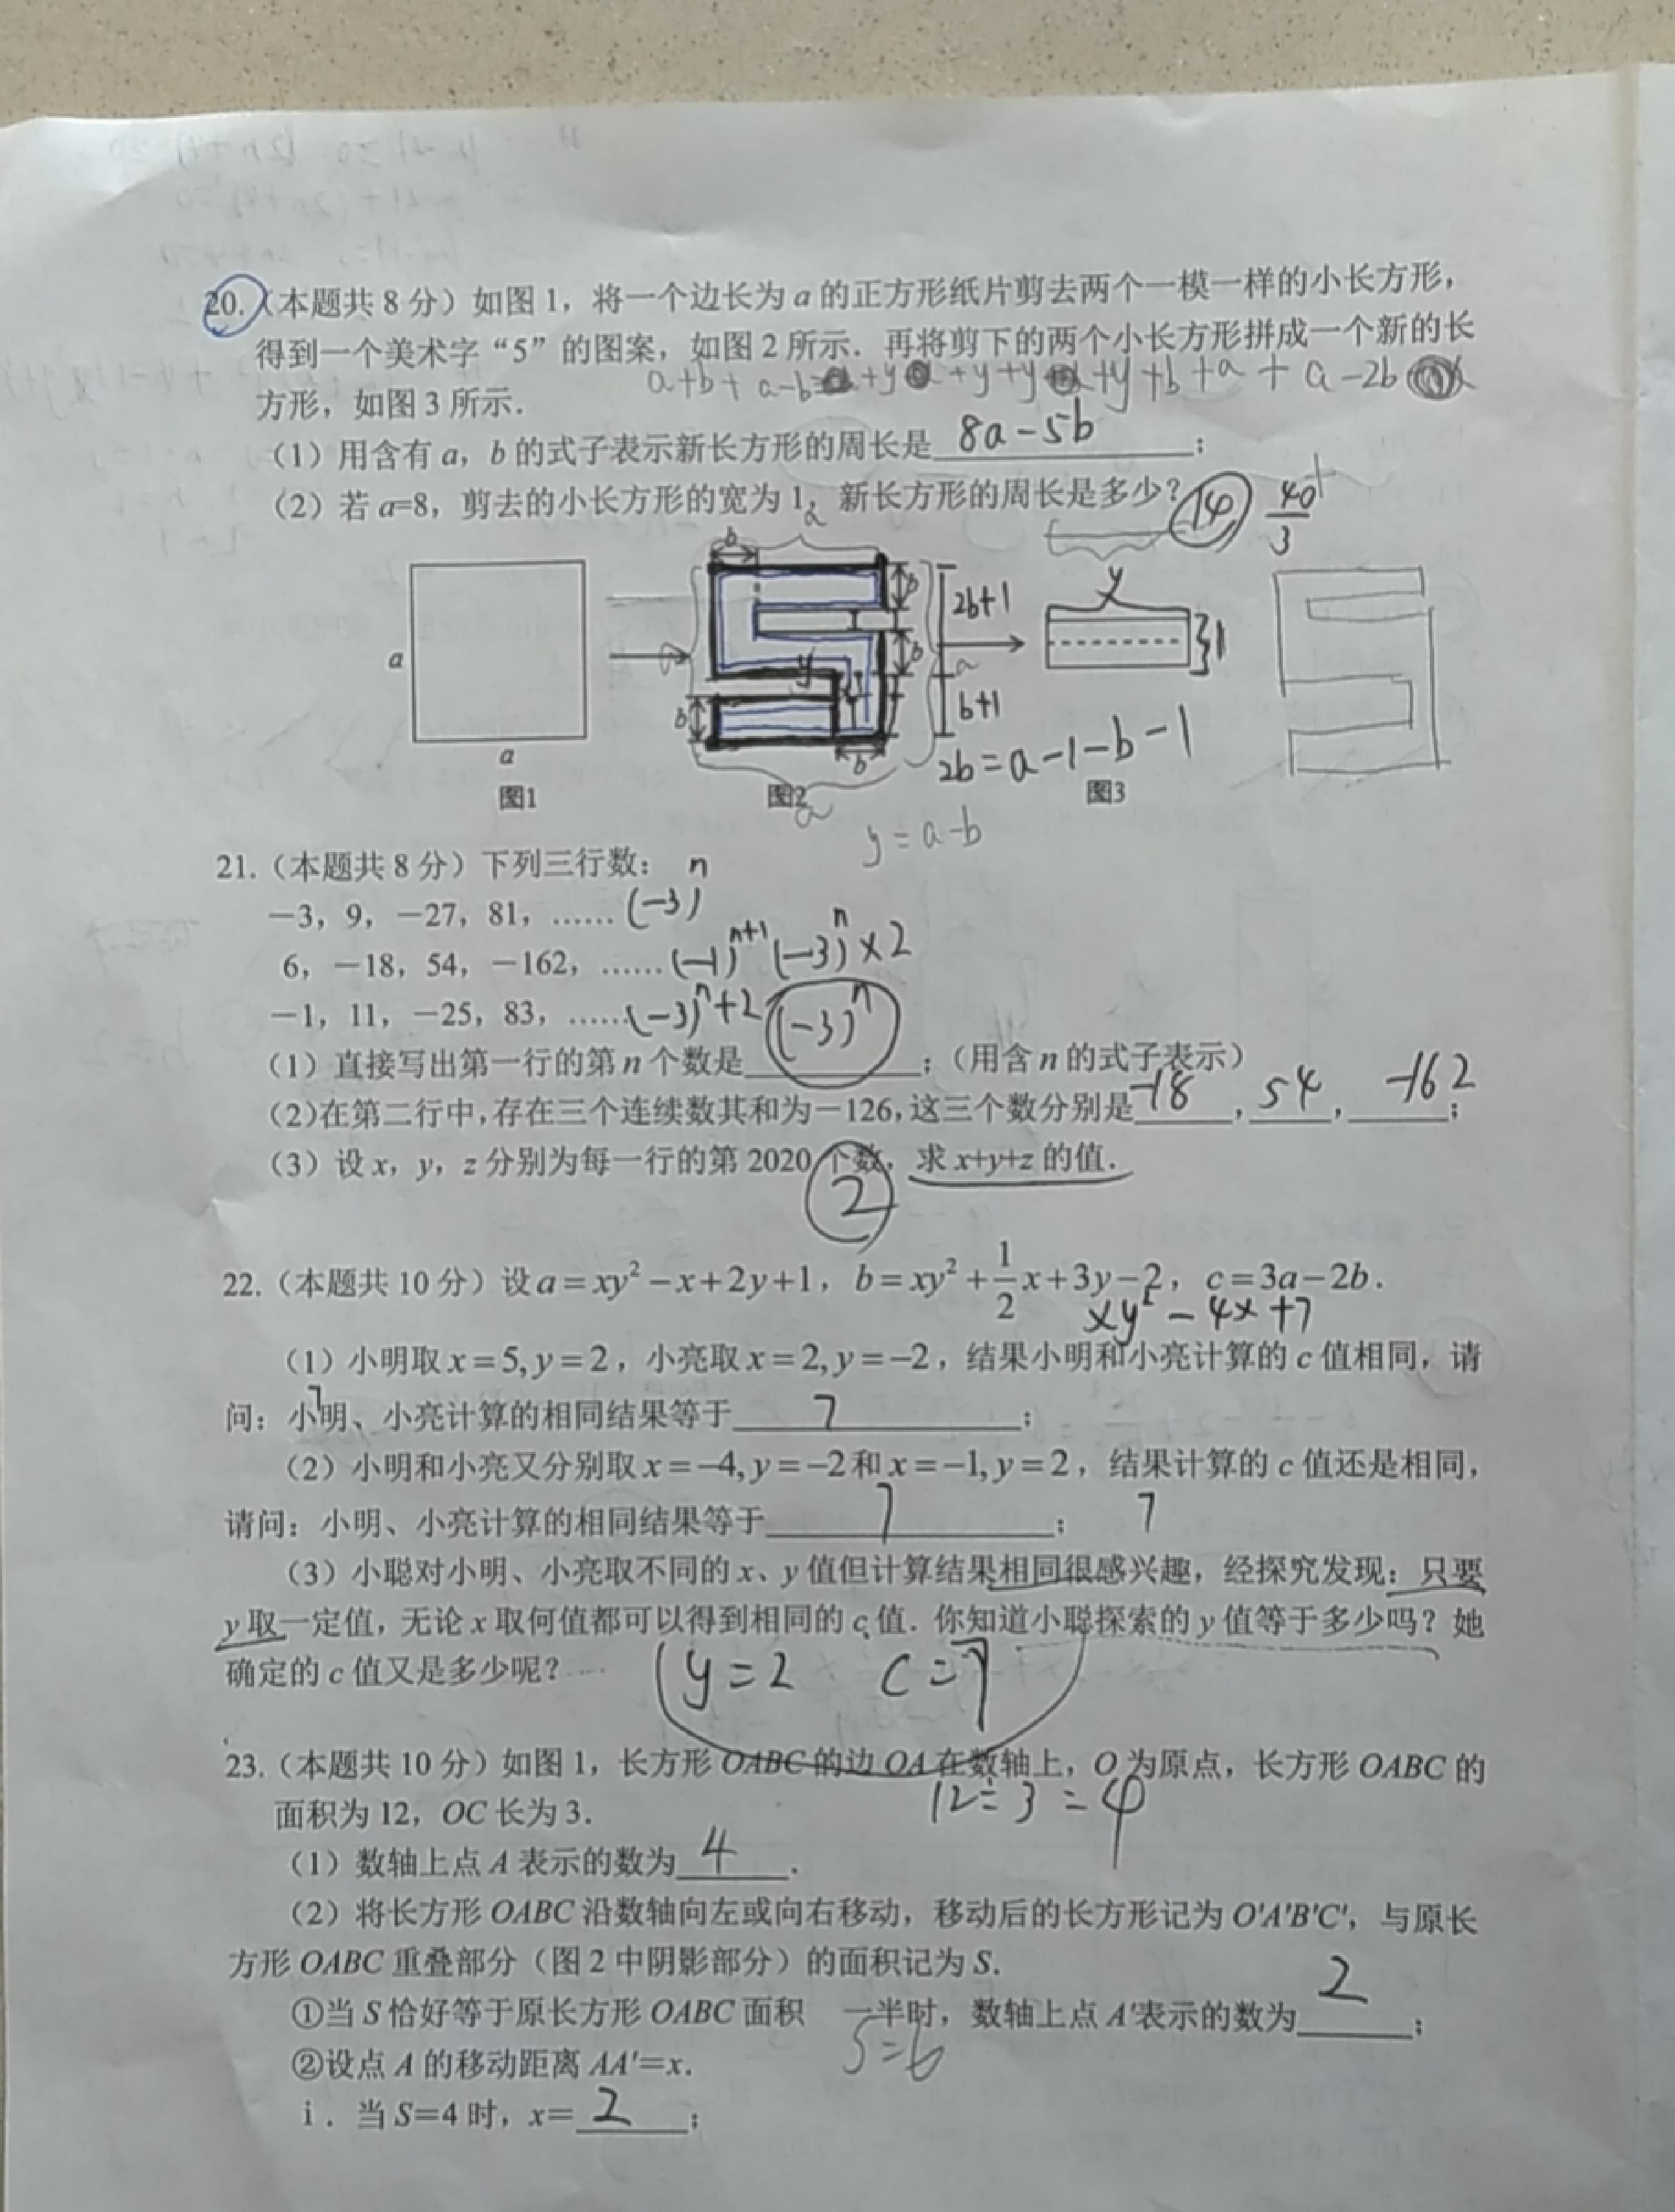 20.（本题共 8 分）如图 1，将一个边长为 a 的正方形纸片剪去两个一模一样的小长方形，
得到一个美术字“5”的图案，如图 2 所示．再将剪下的两个小长方形拼成一个新的长
a+b+a-b +y +y+y +y+b+a+a-2b
方形，如图 3 所示．
（1）用含有 a，b 的式子表示新长方形的周长是 8a-5b ；
（2）若 a=8，剪去的小长方形的宽为 1，新长方形的周长是多少？ 14 40/3
a
b
b
2b+1
y
a
a
y
b
a
1
b
b+1
a
b
2b=a-1-b-1
图1
图2
图3
a
y=a-b
21.（本题共 8 分）下列三行数：
－3，9，－27，81，…… (-3)^n
6，－18，54，－162，…… (-1)^{n+1} (-3)^n ×2
－1，11，－25，83，…… (-3)^n+2
（1）直接写出第一行的第 n 个数是 (-3)^n ；（用含 n 的式子表示）
（2）在第二行中，存在三个连续数其和为－126，这三个数分别是 -18 ， 54 ， -162 ；
（3）设 x，y，z 分别为每一行的第 2020 个数，求 x+y+z 的值．
2
22.（本题共 10 分）设 a＝xy²－x＋2y＋1，b＝xy²＋1/2x＋3y－2，c＝3a－2b．
xy²-4x+7
（1）小明取 x＝5, y＝2，小亮取 x＝2, y＝−2，结果小明和小亮计算的 c 值相同，请
7
问：小明、小亮计算的相同结果等于 7 ；
（2）小明和小亮又分别取 x＝−4, y＝−2 和 x＝−1, y＝2，结果计算的 c 值还是相同，
请问：小明、小亮计算的相同结果等于 7 ； 7
（3）小聪对小明、小亮取不同的 x、y 值但计算结果相同很感兴趣，经探究发现：只要
y 取一定值，无论 x 取何值都可以得到相同的 c 值．你知道小聪探索的 y 值等于多少吗？她
确定的 c 值又是多少呢？ y=2 c=7
23.（本题共 10 分）如图 1，长方形 OABC 的边 OA 在数轴上，O 为原点，长方形 OABC 的
面积为 12，OC 长为 3． 12÷3=4
（1）数轴上点 A 表示的数为 4 ．
（2）将长方形 OABC 沿数轴向左或向右移动，移动后的长方形记为 O'A'B'C'，与原长
方形 OABC 重叠部分（图 2 中阴影部分）的面积记为 S．
①当 S 恰好等于原长方形 OABC 面积 一半时，数轴上点 A'表示的数为 2 ；
S=6
②设点 A 的移动距离 AA'＝x．
ⅰ．当 S＝4 时，x＝ 2 ；